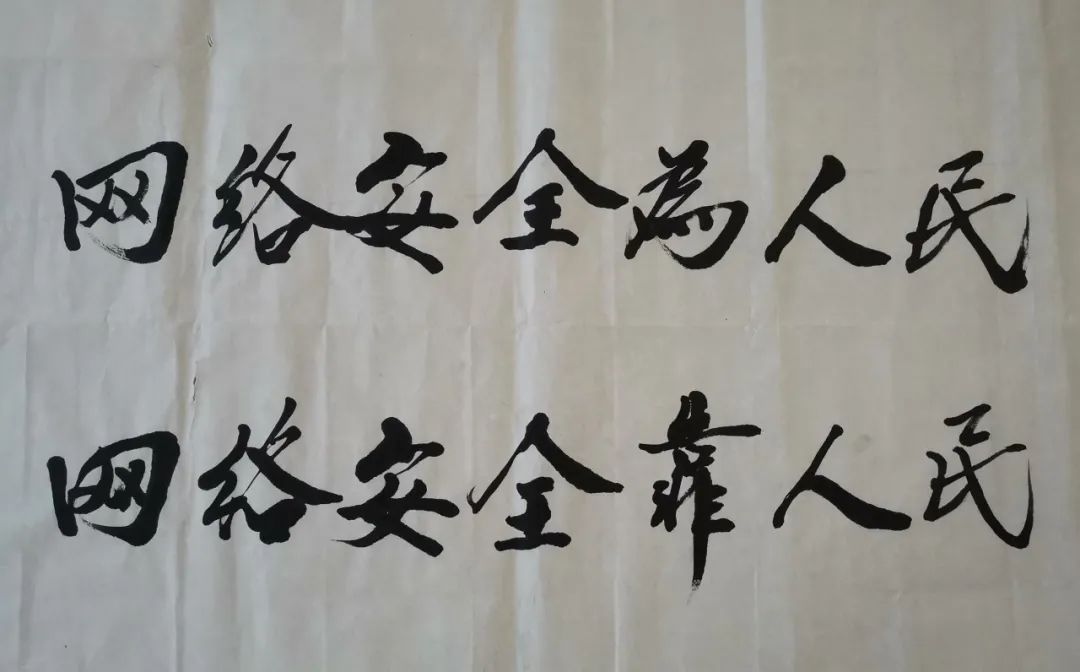 网络安全為人民
网络安全靠人民